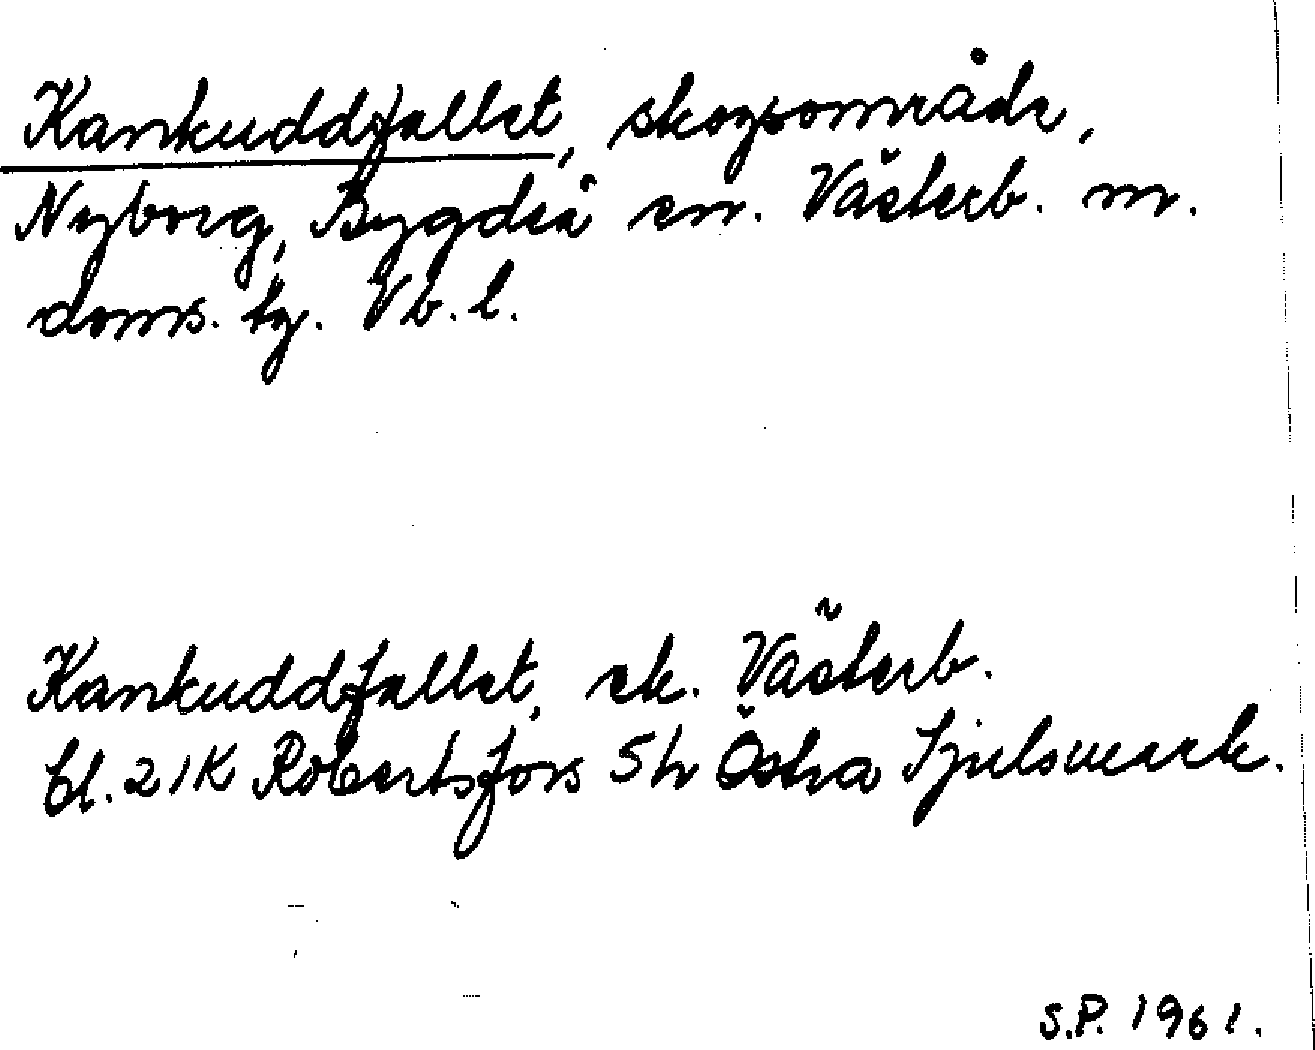 Kankuddfallet, skogsområde,
Nyborg, Bygdeå sn. Västerb. m.
doms. tg. Vb. l.
Kankuddfallet, ek. Västerb.
bl. 21K Robertsfors 5h Östra Sjulsmark.
S.P. 1961.